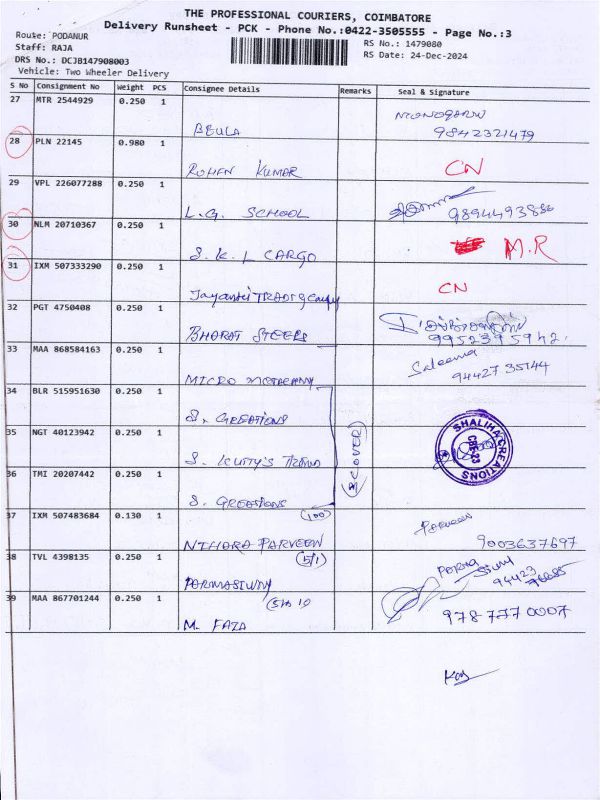 THE PROFESSIONAL COURIERS, COIMBATORE
Delivery Runsheet - PCK - Phone No.:0422-3505555 - Page No.:3
Route: PODANUR
RS No.: 1479080
Staff: RAJA
RS Date: 24-Dec-2024
DRS No.: DCJB147908003
Vehicle: Two Wheeler Delivery
S No Consignment No Weight PCS Consignee Details Remarks Seal & Signature
27 MTR 2544929 0.250 1
BEULA 9842321479
28 PLN 22145 0.980 1
ROHAN KUMAR CN
29 VPL 226077288 0.250 1
L.G. SCHOOL
30 NLM 20710367 0.250 1
S.K.L CARGO M.R
31 IXM 507333290 0.250 1
CN
32 PGT 4750408 0.250 1
BHARAT STEELS 9952395942
33 MAA 868584163 0.250 1
Saleema
MICRO 94427 35144
34 BLR 515951630 0.250 1
S. CREATIONS
35 NGT 40123942 0.250 1
S. KUTTY'S TREND
(2 COVER)
SHALIHA CREATIONS
CBE-23
36 TMI 20207442 0.250 1
S. CREATIONS
37 IXM 507483684 0.130 1 (100)
PARVEEN
NIHARA PARVEEN 9003637697
38 TVL 4398135 0.250 1 (5/1)
94423
39 MAA 867701244 0.250 1
M. FAIZA 978 777 0007